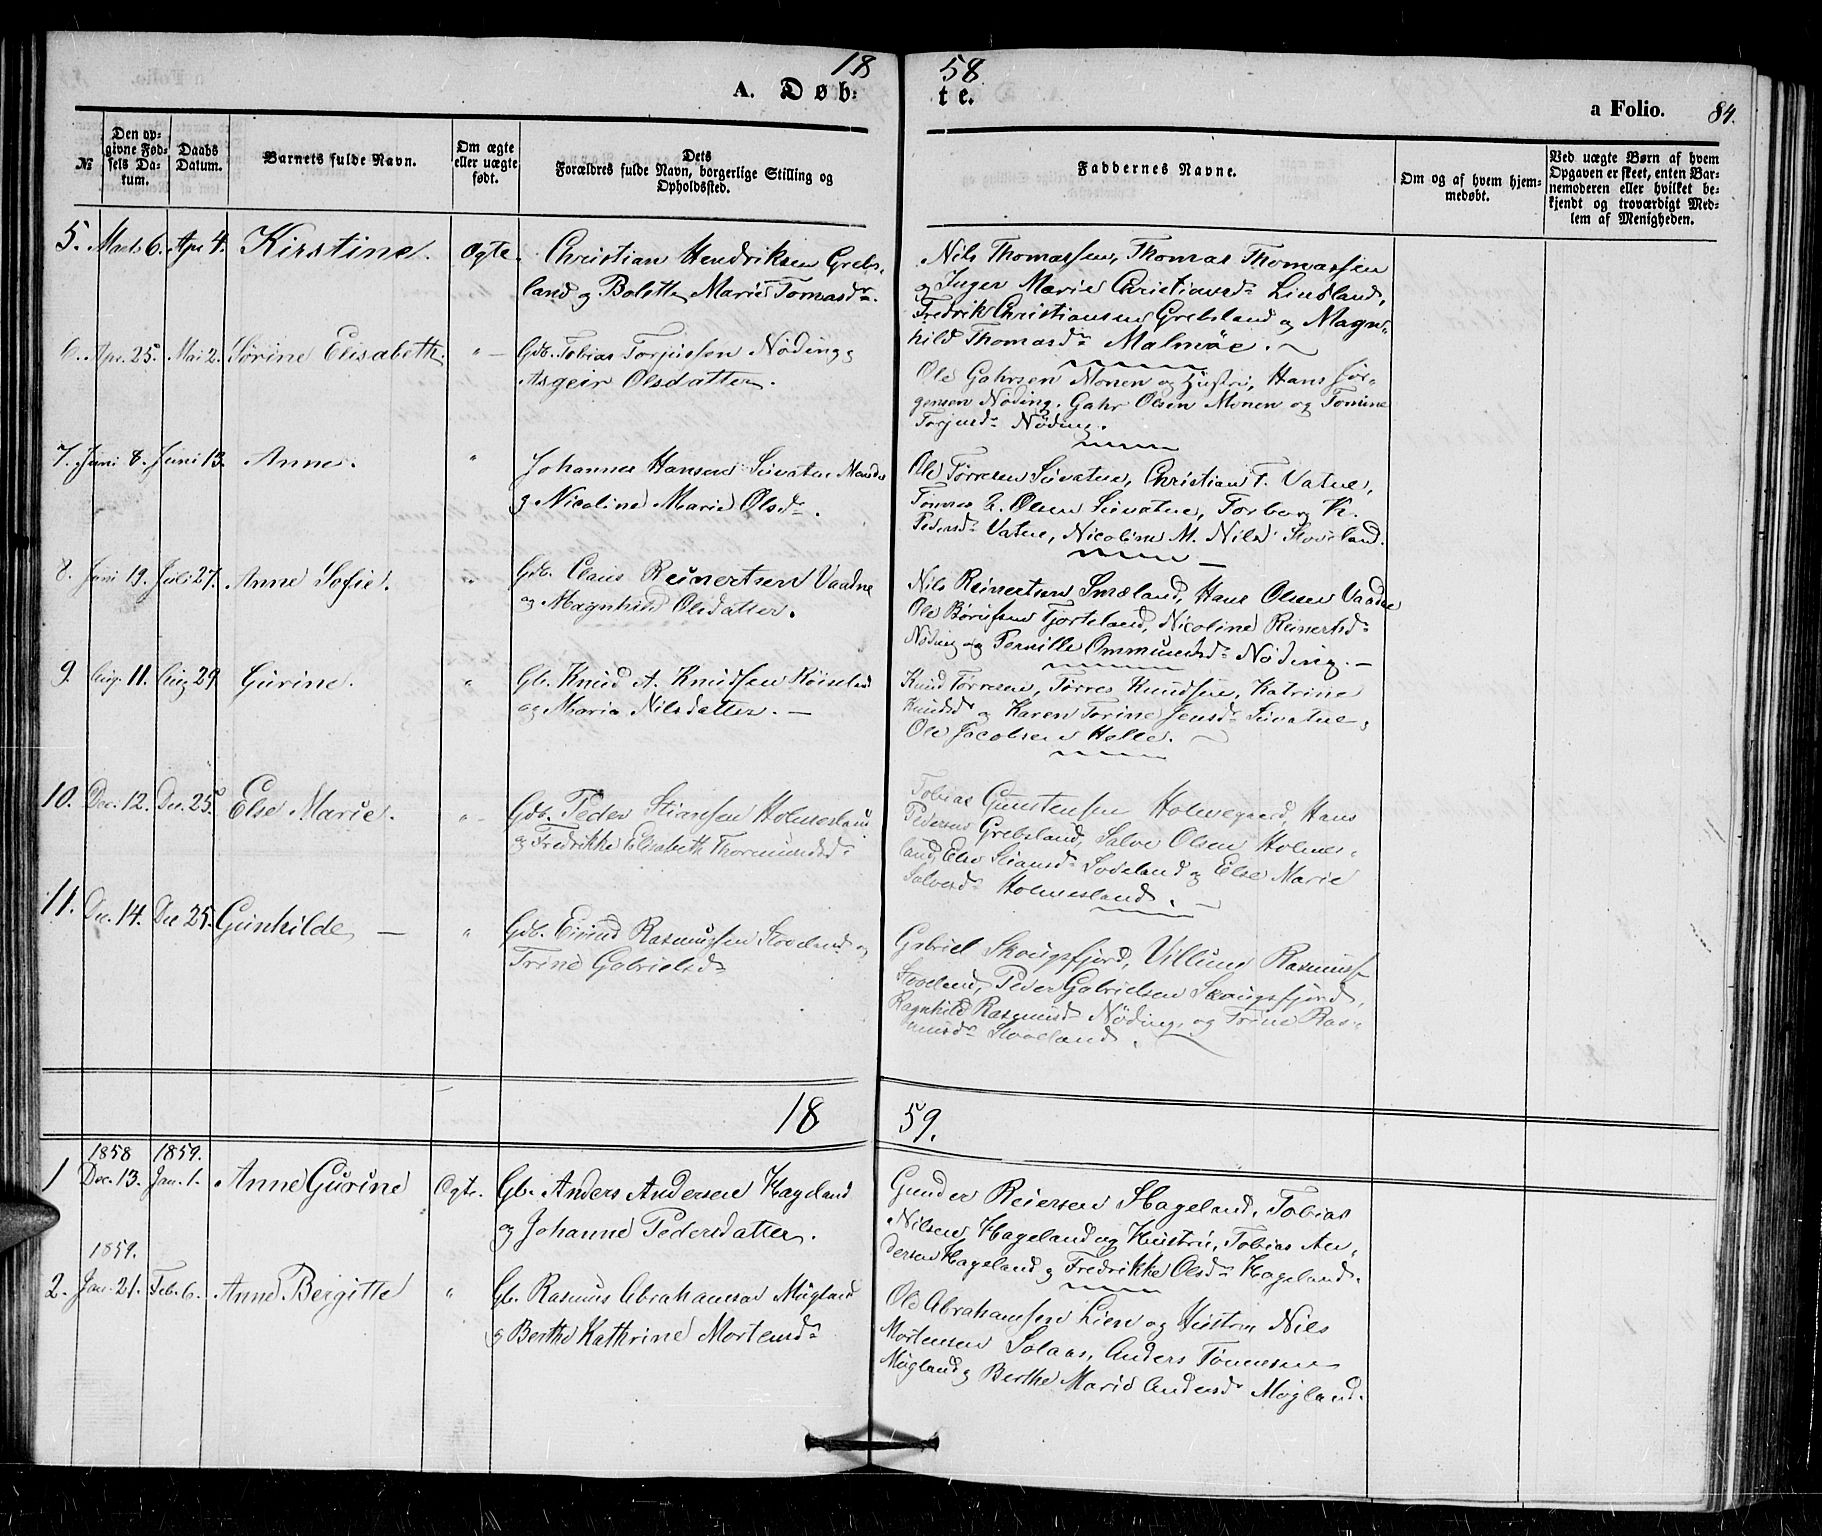 18 58
A. Døbte.
a Folio. 84.
№
Den opgivne Fødsels Datum.
Daabs Datum.
Barnets fulde Navn.
Om ægte eller uægte født.
Dets Forældres fulde Navn, borgerlige Stilling og Opholdssted.
Faddernes Navne.
Om og af hvem hjemmedøbt.
Ved uægte Børn af hvem Opgaven er skeet, enten Barnemoderen eller hvilket bekjendt og troværdigt Medlem af Menigheden.
5. Marts 6. Apr. 4. Kirstine. Ægte.
Christian Hendriksen Grebs-
land og Bolette Marie Tomasdr.
Nils Thomassen, Thomas Thomassen
og Inger Marie Christiansdr Lindland,
Fredrik Christiansen Grebsland og Magn-
hild Thomasdr Malmøe.
6. Apr. 25. Mai 2. Sørine Elisabeth. "
Gdb. Tobias Torjussen Nøding og
Asgeir Olsdatter.
Ole Gahrsen Monen og Hustru, Hans Jør-
gensen Nøding. Gahr Olsen Monen og Tomine
Torjusdr Nøding.
7. Juni 8. Juni 13. Anne. "
Johannes Hansen Suvatne
og Nicoline Marie Olsdr.
Ole Tørresen Suvatne, Christian T. Vatne,
Olsen Suvatne, Torborg K.
Pedersdr Vatne, Nicoline M. Nilsd Stoveland.
8. Juni 19. Juli 27. Anne Sofie. "
Gdb. Claus Reinertsen Vaadne
og Magnhild Olsdatter.
Nils Reinertsen Smæland, Hans Olsen Vaadne
Ole Børufsen Fjorteland, Nicoline Reinertsd
Nøding og Pernille Ommundsdr Nøding.
9. Aug. 11. Aug 29 Gurine. "
Gb. Knud A. Knudsen Røiseland
og Maria Nilsdatter.
Knud Tørresen, Tørres Knudsen, Katrine
Knudsd og Karen Torine Jensdr Suvatne,
Ole Jacobsen Holle.
10. Dec. 12. Dec. 25. Else Marie. "
Gdb. Peder Stiansen Holmesland
og Fredrikke Elisabeth Thormundsdr
Tobias Gunstensen Holmegaard, Hans
Pedersen Grebsland, Salve Olsen Holmes-
land, Else Stiansdr Loveland og Else Marie
Salvesdr Holmesland.
11. Dec. 14. Dec 25. Gunhilde "
Gdb. Eivind Rasmussen Stoveland og
Trine Gabrielsdr
Gabriel Skougsfjord, Villum Rasmuss
Stoveland, Peder Gabrielsen Skougsfjord,
Ragnhild Rasmusd Nøding, og Trine Ras-
musdr Stoveland.
18 59.
1858 1859.
1 Dec. 13. Jan. 1. Anne Gurine Ægte.
Gb. Anders Andersen Hageland
og Johanne Pedersdatter.
Gunder Reiersen Hageland, Tobias
Nilsen Hageland og Hustru, Tobias An-
dersen Hageland og Fredrikke Olsdr Hageland.
1859.
2. Jan. 21. Feb. 6. Anne Bergitte "
Gb. Rasmus Abrahamsen Møgland
og Berthe Kathrine Mortensdr
Ole Abrahamsen Lien og Hustru Nils
Mortensen Solaas, Anders Tønnesen
Møgland og Berthe Marie Andersdr Møgland.